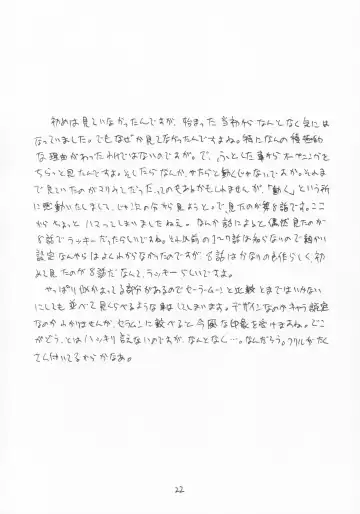 初めは見ていなかったんですが、始まった当初からなんとなく気には
なっていました。でもなぜか見てなかったんですよね。特になんの積極的
な理由がわったわけではないのですが。で、ふっとした事からオープニングを
ちらっと見たんですよ。としたらなんか、やたらと動くじゃないですか。それま
で見ていたのがマリみてだったってのもあるかもしれませんが、「動く」という所
に感動いたしまして、じゃ次の分から見ようと。で、見たのが第8話です。ここ
からちょっとハマってしまいましたねえ。なんか話によると偶然見たのが
8話でラッキーだったらしいですね。それ以前の1~7話は知らないので細かい
設定なんやらはよくわからなかったのですが、8話はかなりの名作らしく、初
めて見たのが8話だなんて、ラッキーらしいですよ。
やっぱり似かよってる部分があるのでセーラームーンと比較とまではいかない
にしても並べて見くらべるような事はしてしまいます。デザインなのかキャラ設定
なのかわかりませんが、セラムンに較べると今風な印象を受けますね。どこ
がどう、とはハッキリ言えないのですが、なんとなく…。なんだろう。フリルがたく
さん付いてるからかなぁ。
22